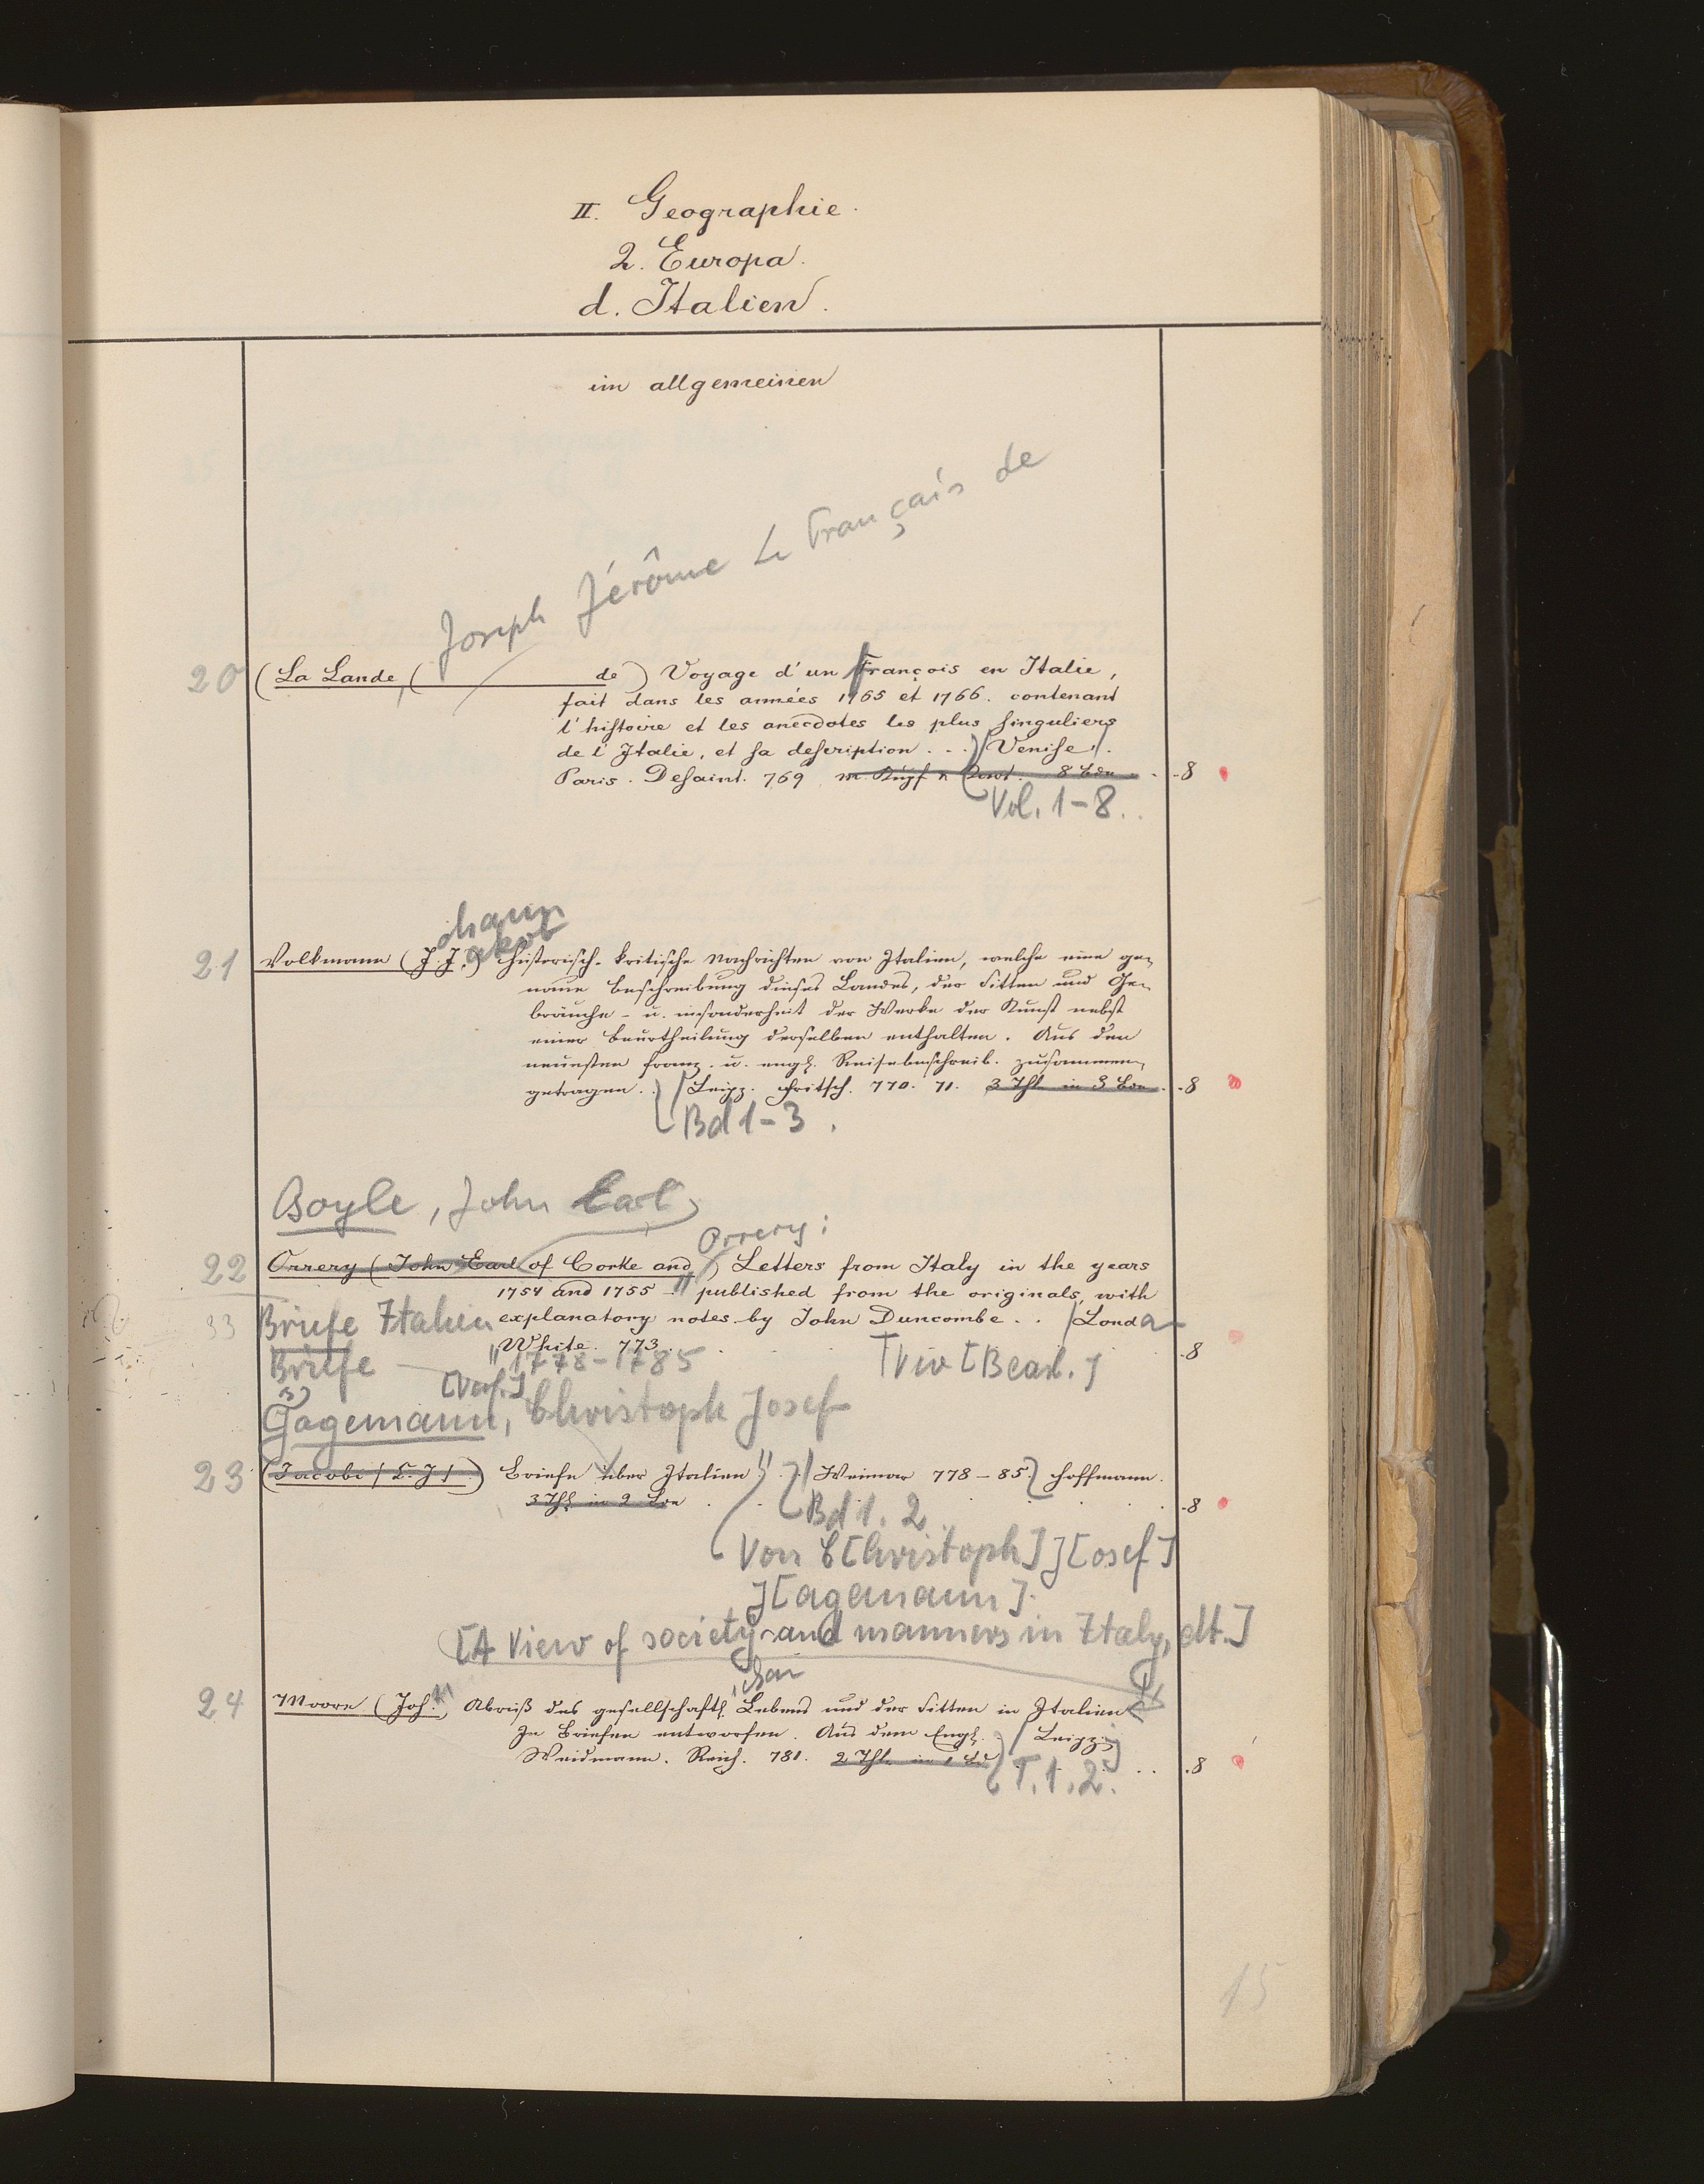 II. Geographie.
2. Europa.
d. Italien.
im allgemeinen
Joseph Jérôme Le Français de
20 (La Lande, ( de) Voyage d'un François en Italie,
fait dans les années 1765 et 1766. contenant
l'histoire et les anecdotes les plus singuliers
de l'Italie, et sa description . . .) Venise.
Paris. Desaint. 769 m. Kupf. 8 Bde -8
Vol. 1-8.
ohann
akob
21 Volkmann (J. J.) historisch-kritische Nachrichten von Italien, welche eine ge-
naue Beschreibung dieses Landes, der Sitten und Ge-
bräuche - u. insonderheit der Werke der Kunst nebst
einer Beurtheilung derselben enthalten. Aus den
neuesten franz. u. engl. Reisebeschreib. zusammen-
getragen . . Leipz. Fritsch. 770. 71. 3 Thl. in 3 Bde. -8
Bd 1-3.
Boyle, John Earl
Orrery:
22 Orrery (John Earl of Corke and) Letters from Italy in the years
1754 and 1755 - published from the originals, with
33 Briefe Italien explanatory notes by John Duncombe . . Lond
White. 773. -8
Briefe 1778-1785 [Bearl.]
[Verf.]
Jagemann, Christoph Josef
23 (Jacobi) Briefe über Italien . Weimar 778-85. Hoffmann.
3 Thl. in 2 Bde -8
Bd 1. 2
Von C[hristoph] J[osef]
J[agemann].
[A View of society and manners in Italy, dt.]
24 Moore (Joh.) Abriß des gesellschaftl. Lebens und der Sitten in Italien
In Briefen entworfen. Aus dem Engl. Leipzig
Weidmann. Reich. 781. 2 Thl. in 1 Bd -8
T. 1. 2.
15